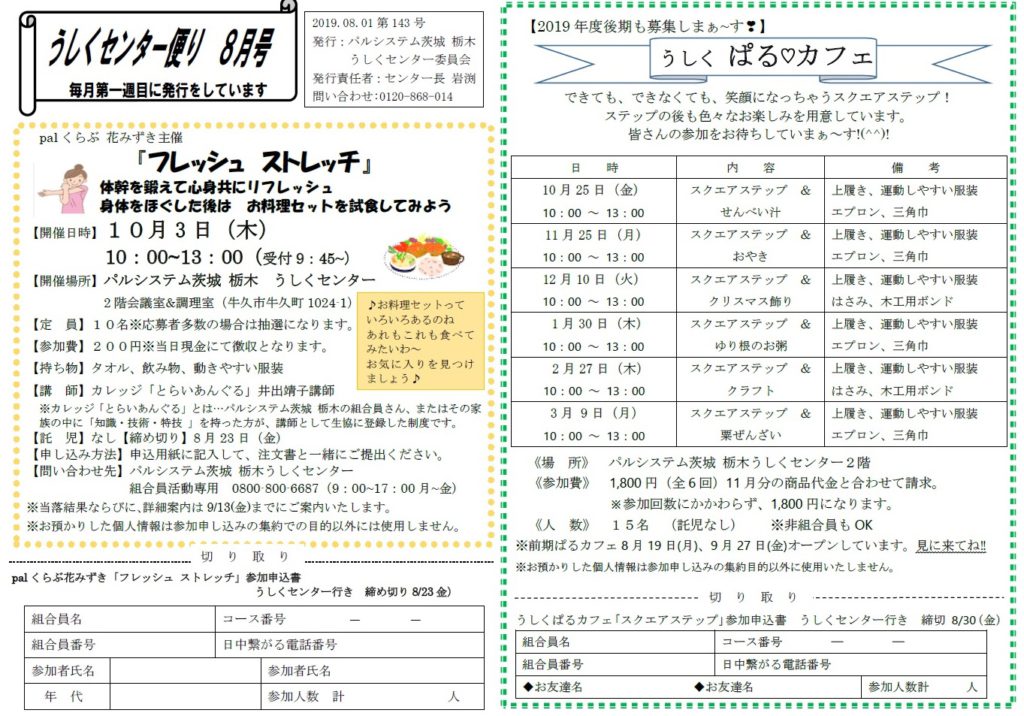 うしくセンター便り 8月号
毎月第一週目に発行をしています
2019.08.01 第143号
発行：パルシステム茨城 栃木
うしくセンター委員会
発行責任者：センター長 岩渕
問い合わせ：0120-868-014
palくらぶ 花みずき主催
『フレッシュ ストレッチ』
体幹を鍛えて心身共にリフレッシュ
身体をほぐした後は お料理セットを試食してみよう
【開催日時】１０月３日（木）
10：00~13：00（受付 9：45~）
【開催場所】パルシステム茨城 栃木 うしくセンター
２階会議室&調理室（牛久市牛久町 1024-1）
♪お料理セットって
いろいろあるのね
あれもこれも食べて
みたいわ~
お気に入りを見つけ
ましょう♪
【定 員】１０名※応募者多数の場合は抽選になります。
【参加費】２００円※当日現金にて徴収となります。
【持ち物】タオル、飲み物、動きやすい服装
【講 師】カレッジ「とらいあんぐる」井出靖子講師
※カレッジ「とらいあんぐる」とは…パルシステム茨城 栃木の組合員さん、またはその家
族の中に「知識・技術・特技 」を持った方が、講師として生協に登録した制度です。
【託 児】なし【締め切り】８月 23 日（金）
【申し込み方法】申込用紙に記入して、注文書と一緒にご提出ください。
【問い合わせ先】パルシステム茨城 栃木うしくセンター
組合員活動専用 0800-800-6687（9：00~17：00 月~金）
※当落結果ならびに、詳細案内は 9/13(金)までにご案内いたします。
※お預かりした個人情報は参加申し込みの集約での目的以外には使用しません。
切 り 取 り
palくらぶ花みずき「フレッシュ ストレッチ」参加申込書
うしくセンター行き 締め切り 8/23 金）
組合員名 コース番号 － －
組合員番号 日中繋がる電話番号
参加者氏名 参加者氏名
年 代 参加人数 計 人
【2019 年度後期も募集しまぁ~す❣】
うしく ぱる♡カフェ
できても、できなくても、笑顔になっちゃうスクエアステップ！
ステップの後も色々なお楽しみを用意しています。
皆さんの参加をお待ちしていまぁ~す!(^^)!
日 時 内 容 備 考
10 月 25 日（金） スクエアステップ ＆ 上履き、運動しやすい服装
10：00 ～ 13：00 せんべい汁 エプロン、三角巾
11 月 25 日（月） スクエアステップ ＆ 上履き、運動しやすい服装
10：00 ～ 13：00 おやき エプロン、三角巾
12 月 10 日（火） スクエアステップ ＆ 上履き、運動しやすい服装
10：00 ～ 13：00 クリスマス飾り はさみ、木工用ボンド
1 月 30 日（木） スクエアステップ ＆ 上履き、運動しやすい服装
10：00 ～ 13：00 ゆり根のお粥 エプロン、三角巾
2 月 27 日（木） スクエアステップ ＆ 上履き、運動しやすい服装
10：00 ～ 13：00 クラフト はさみ、木工用ボンド
3 月 9 日（月） スクエアステップ ＆ 上履き、運動しやすい服装
10：00 ～ 13：00 栗ぜんざい エプロン、三角巾
《場 所》 パルシステム茨城 栃木うしくセンター２階
《参加費》 1,800 円（全６回）11 月分の商品代金と合わせて請求。
※参加回数にかかわらず、1,800 円になります。
《人 数》 １５名 （託児なし） ※非組合員も OK
※前期ぱるカフェ 8 月 19 日(月)、9 月 27 日(金)オープンしています。見に来てね!!
※お預かりした個人情報は参加申し込みの集約目的以外に使用いたしません。
切 り 取 り
うしくぱるカフェ「スクエアステップ」参加申込書 うしくセンター行き 締切 8/30（金）
組合員名 コース番号 － －
組合員番号 日中繋がる電話番号
◆お友達名 ◆お友達名 参加人数計 人